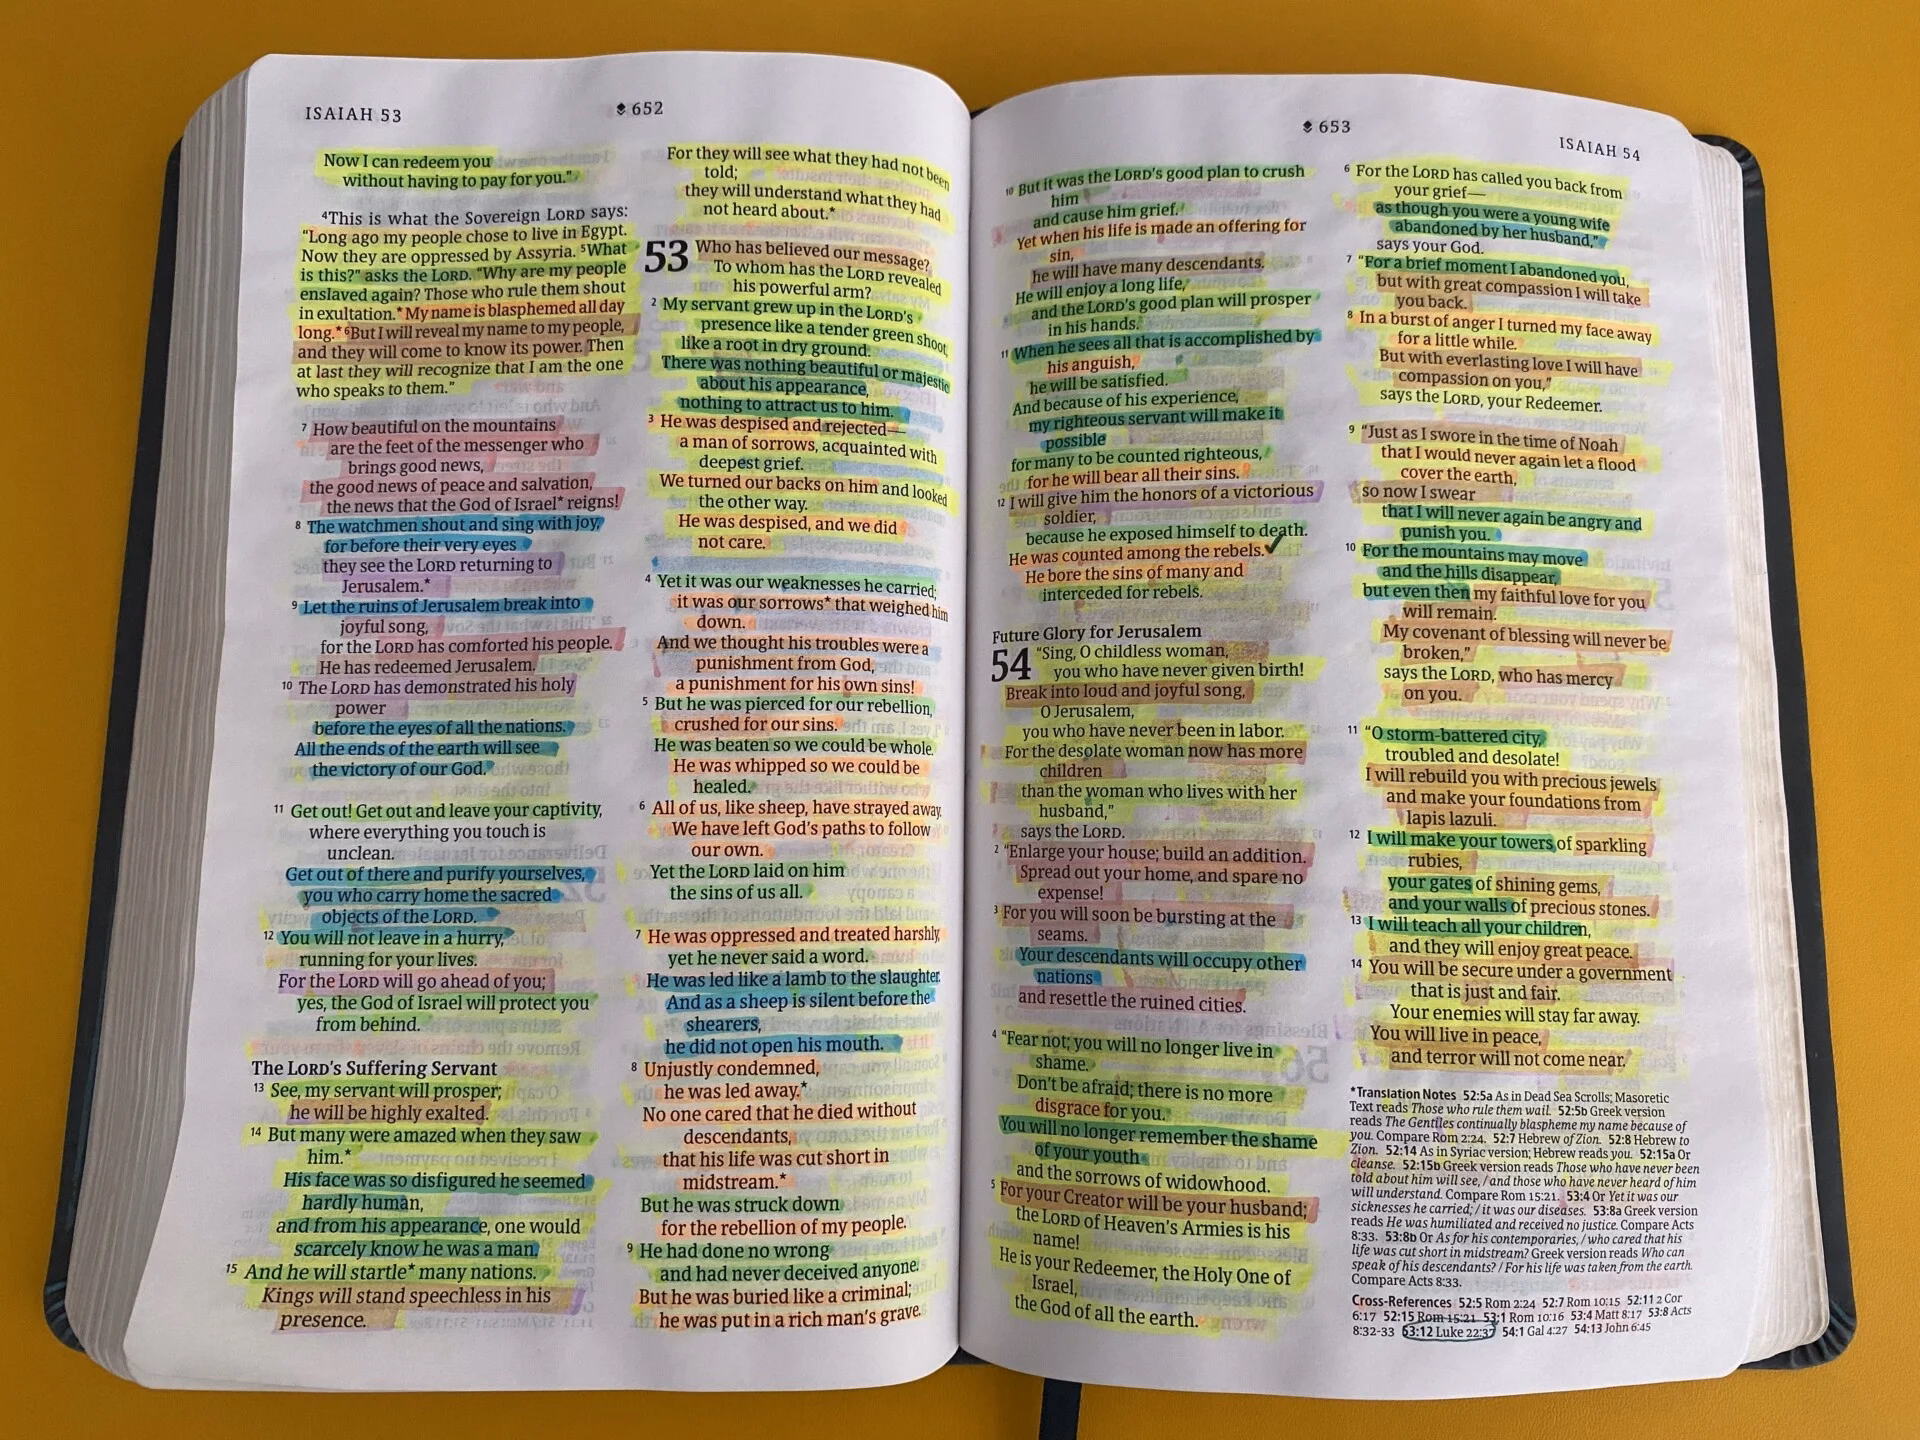 ISAIAH 53
652
Now I can redeem you
without having to pay for you.”
4This is what the Sovereign LORD says:
“Long ago my people chose to live in Egypt.
Now they are oppressed by Assyria. 5What
is this?” asks the LORD. “Why are my people
enslaved again? Those who rule them shout
in exultation.* My name is blasphemed all day
long.* 6But I will reveal my name to my people,
and they will come to know its power. Then
at last they will recognize that I am the one
who speaks to them.”
7 How beautiful on the mountains
are the feet of the messenger who
brings good news,
the good news of peace and salvation,
the news that the God of Israel* reigns!
8 The watchmen shout and sing with joy,
for before their very eyes
they see the LORD returning to
Jerusalem.*
9 Let the ruins of Jerusalem break into
joyful song,
for the LORD has comforted his people.
He has redeemed Jerusalem.
10 The LORD has demonstrated his holy
power
before the eyes of all the nations.
All the ends of the earth will see
the victory of our God.
11 Get out! Get out and leave your captivity,
where everything you touch is
unclean.
Get out of there and purify yourselves,
you who carry home the sacred
objects of the LORD.
12 You will not leave in a hurry,
running for your lives.
For the LORD will go ahead of you;
yes, the God of Israel will protect you
from behind.
The LORD’s Suffering Servant
13 See, my servant will prosper;
he will be highly exalted.
14 But many were amazed when they saw
him.*
His face was so disfigured he seemed
hardly human,
and from his appearance, one would
scarcely know he was a man.
15 And he will startle* many nations.
Kings will stand speechless in his
presence.
For they will see what they had not been
told;
they will understand what they had
not heard about.*
53 Who has believed our message?
To whom has the LORD revealed
his powerful arm?
2 My servant grew up in the LORD’s
presence like a tender green shoot,
like a root in dry ground.
There was nothing beautiful or majestic
about his appearance,
nothing to attract us to him.
3 He was despised and rejected—
a man of sorrows, acquainted with
deepest grief.
We turned our backs on him and looked
the other way.
He was despised, and we did
not care.
4 Yet it was our weaknesses he carried;
it was our sorrows* that weighed him
down.
And we thought his troubles were a
punishment from God,
a punishment for his own sins!
5 But he was pierced for our rebellion,
crushed for our sins.
He was beaten so we could be whole.
He was whipped so we could be
healed.
6 All of us, like sheep, have strayed away.
We have left God’s paths to follow
our own.
Yet the LORD laid on him
the sins of us all.
7 He was oppressed and treated harshly,
yet he never said a word.
He was led like a lamb to the slaughter.
And as a sheep is silent before the
shearers,
he did not open his mouth.
8 Unjustly condemned,
he was led away.*
No one cared that he died without
descendants,
that his life was cut short in
midstream.*
But he was struck down
for the rebellion of my people.
9 He had done no wrong
and had never deceived anyone.
But he was buried like a criminal;
he was put in a rich man’s grave.
653
ISAIAH 54
10 But it was the LORD’s good plan to crush
him
and cause him grief.
Yet when his life is made an offering for
sin,
he will have many descendants.
He will enjoy a long life,
and the LORD’s good plan will prosper
in his hands.
11 When he sees all that is accomplished by
his anguish,
he will be satisfied.
And because of his experience,
my righteous servant will make it
possible
for many to be counted righteous,
for he will bear all their sins.
12 I will give him the honors of a victorious
soldier,
because he exposed himself to death.
He was counted among the rebels.
He bore the sins of many and
interceded for rebels.
Future Glory for Jerusalem
54 “Sing, O childless woman,
you who have never given birth!
Break into loud and joyful song,
O Jerusalem,
you who have never been in labor.
For the desolate woman now has more
children
than the woman who lives with her
husband,”
says the LORD.
2 “Enlarge your house; build an addition.
Spread out your home, and spare no
expense!
3 For you will soon be bursting at the
seams.
Your descendants will occupy other
nations
and resettle the ruined cities.
4 “Fear not; you will no longer live in
shame.
Don’t be afraid; there is no more
disgrace for you.
You will no longer remember the shame
of your youth
and the sorrows of widowhood.
5 For your Creator will be your husband;
the LORD of Heaven’s Armies is his
name!
He is your Redeemer, the Holy One of
Israel,
the God of all the earth.
6 For the LORD has called you back from
your grief—
as though you were a young wife
abandoned by her husband,”
says your God.
7 “For a brief moment I abandoned you,
but with great compassion I will take
you back.
8 In a burst of anger I turned my face away
for a little while.
But with everlasting love I will have
compassion on you,”
says the LORD, your Redeemer.
9 “Just as I swore in the time of Noah
that I would never again let a flood
cover the earth,
so now I swear
that I will never again be angry and
punish you.
10 For the mountains may move
and the hills disappear,
but even then my faithful love for you
will remain.
My covenant of blessing will never be
broken,”
says the LORD, who has mercy
on you.
11 “O storm-battered city,
troubled and desolate!
I will rebuild you with precious jewels
and make your foundations from
lapis lazuli.
12 I will make your towers of sparkling
rubies,
your gates of shining gems,
and your walls of precious stones.
13 I will teach all your children,
and they will enjoy great peace.
14 You will be secure under a government
that is just and fair.
Your enemies will stay far away.
You will live in peace,
and terror will not come near.
*Translation Notes 52:5a As in Dead Sea Scrolls; Masoretic
Text reads Those who rule them wail. 52:5b Greek version
reads The Gentiles continually blaspheme my name because of
you. Compare Rom 2:24. 52:7 Hebrew of Zion. 52:8 Hebrew to
Zion. 52:14 As in Syriac version; Hebrew reads you. 52:15a Or
cleanse. 52:15b Greek version reads Those who have never been
told about him will see, / and those who have never heard of him
will understand. Compare Rom 15:21. 53:4 Or Yet it was our
sicknesses he carried; / it was our diseases. 53:8a Greek version
reads He was humiliated and received no justice. Compare Acts
8:33. 53:8b Or As for his contemporaries, / who cared that his
life was cut short in midstream? Greek version reads Who can
speak of his descendants? / For his life was taken from the earth.
Compare Acts 8:33.
Cross-References 52:5 Rom 2:24 52:7 Rom 10:15 52:11 2 Cor
6:17 52:15 Rom 15:21 53:1 Rom 10:16 53:4 Matt 8:17 53:8 Acts
8:32-33 53:12 Luke 22:37 54:1 Gal 4:27 54:13 John 6:45